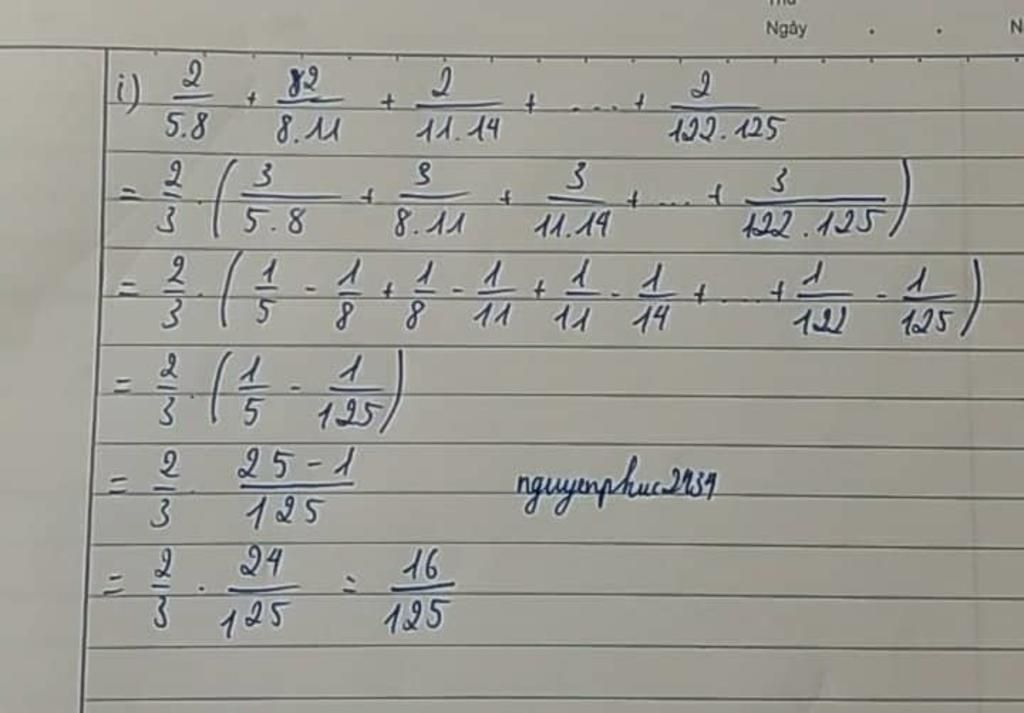 Thứ
Ngày . . N
i) 2/5.8 + 2/8.11 + 2/11.14 + .... + 2/122.125
= 2/3 . ( 3/5.8 + 3/8.11 + 3/11.14 + ... + 3/122.125 )
= 2/3 . ( 1/5 - 1/8 + 1/8 - 1/11 + 1/11 - 1/14 + ... + 1/122 - 1/125 )
= 2/3 . ( 1/5 - 1/125 )
= 2/3 . 25 - 1/125 nguyenphuc2434
= 2/3 . 24/125 = 16/125